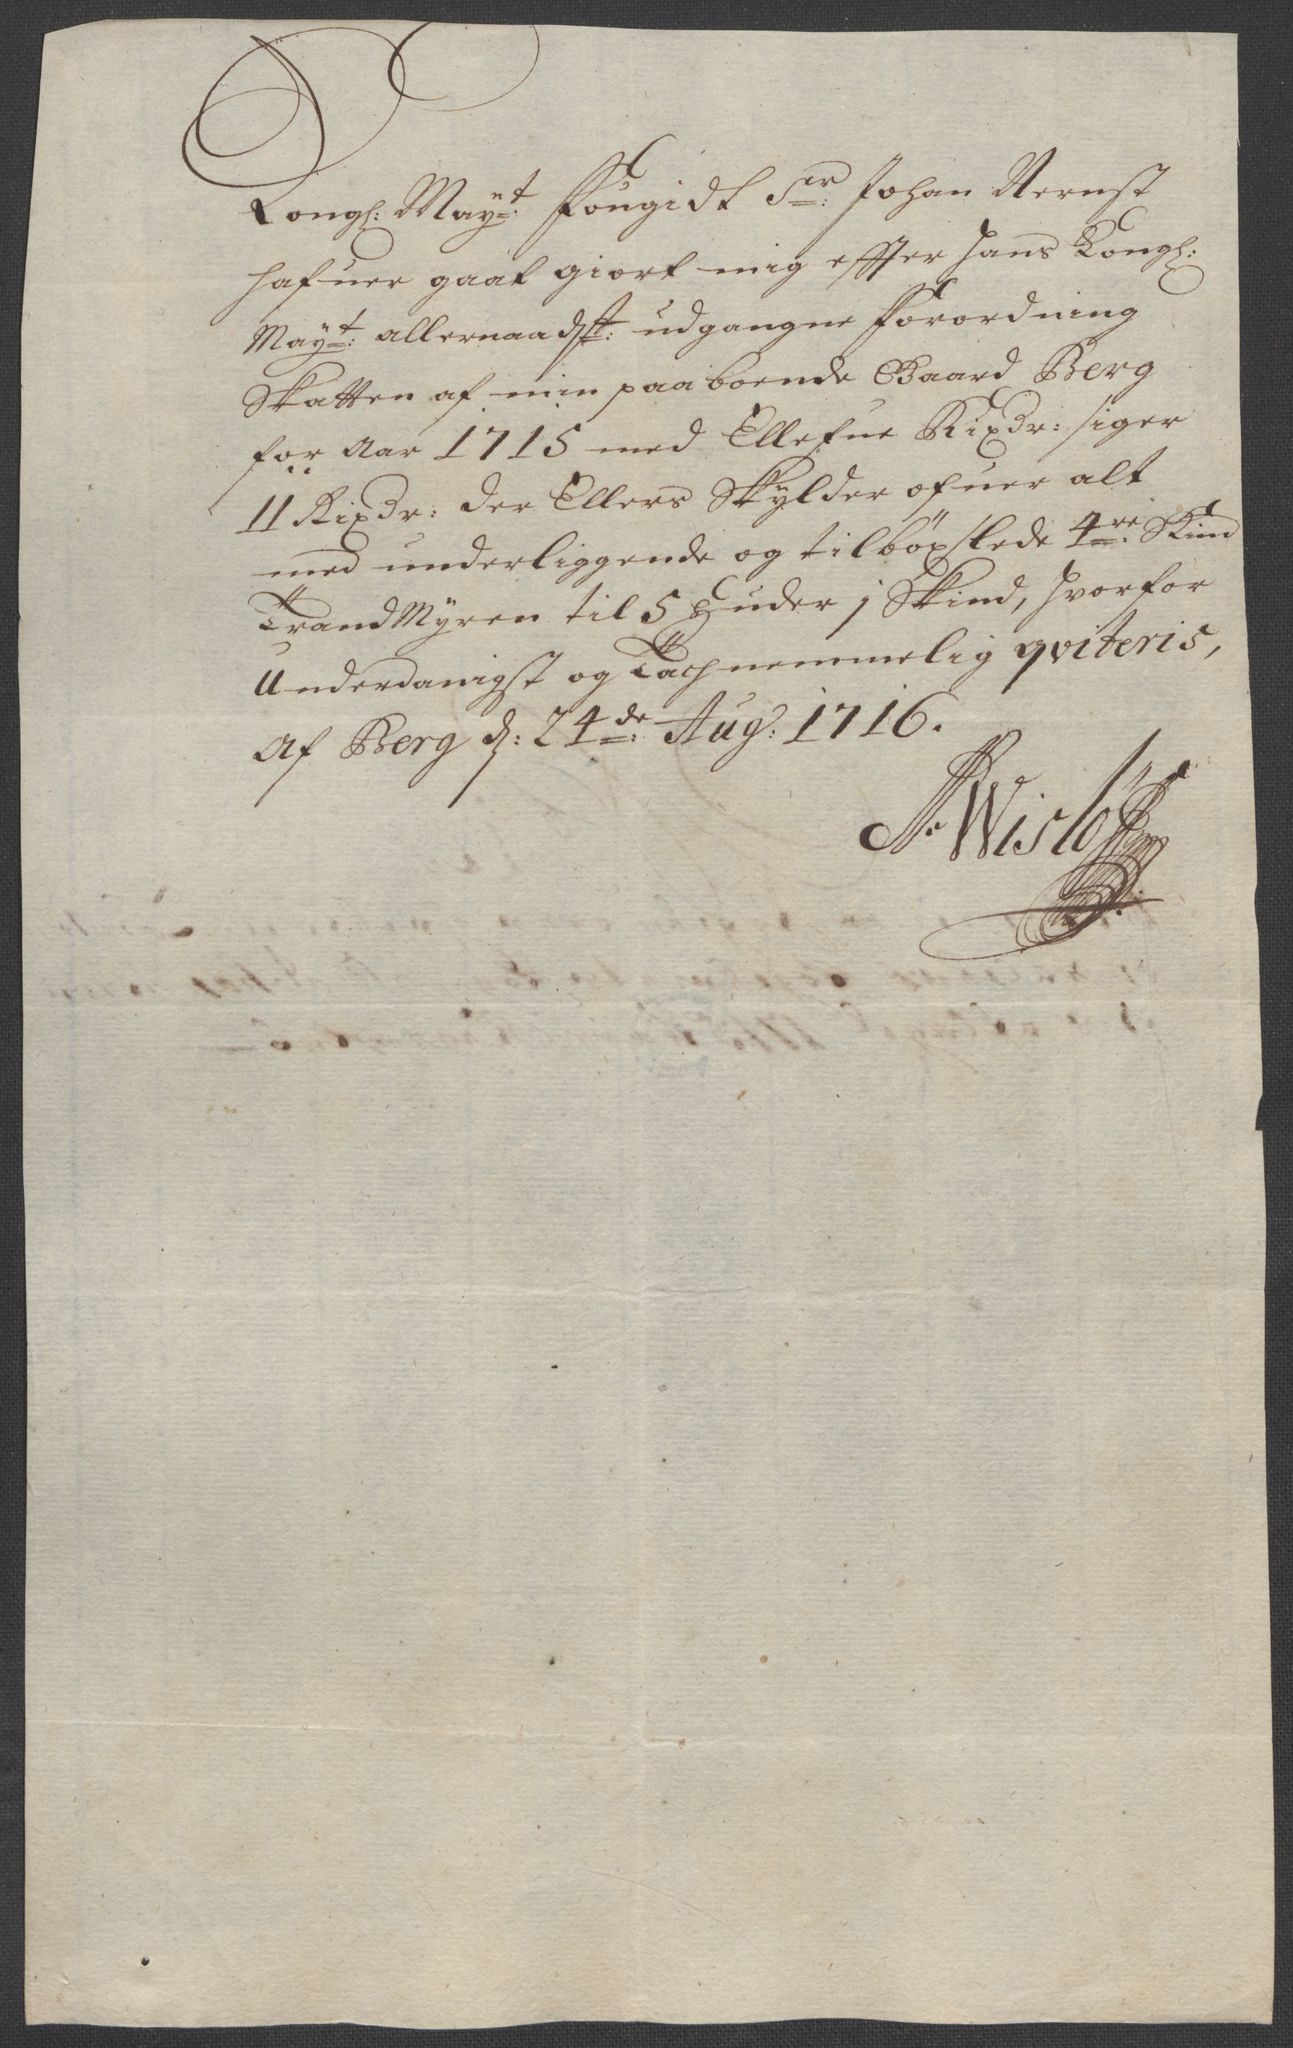 Kongl: Mayt: Fougidt Sr: Johan Nernst
hafuer gaat giort mig effter hans Kongl:
Mayt: allernaadst: udgangne Forordning
Skatten af min paaboende Gaard Berg
for Aar 1715 med Ellefue Rixdr: siger
11 Rixdr: der Ellers Skylder ofuer alt
med underliggende og tilböxlede 4re: Skind
Trand Myren til 5 Huder j Skind, hvorfor
Underdanigst og Tachnemmelig qviteris,
Af Berg d: 24de: Aug: 1716.
Wislöff